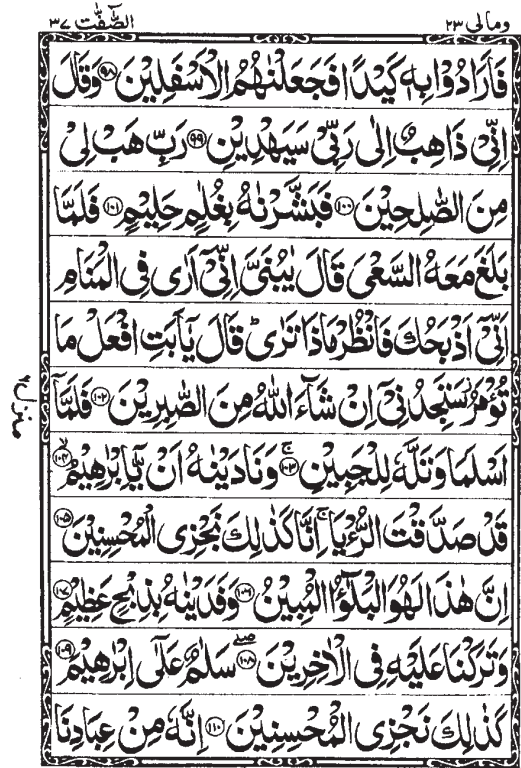 ومالی ٢٣ الصّٰٓفّٰت ٣٧
فَاَرَادُوْا بِهٖ كَيْدًا فَجَعَلْنٰهُمُ الْاَسْفَلِيْنَ ﴿٩٨﴾ وَقَالَ
اِنِّيْ ذَاهِبٌ اِلٰى رَبِّيْ سَيَهْدِيْنِ ﴿٩٩﴾ رَبِّ هَبْ لِيْ
مِنَ الصّٰلِحِيْنَ ﴿١٠٠﴾ فَبَشَّرْنٰهُ بِغُلٰمٍ حَلِيْمٍ ﴿١٠١﴾ فَلَمَّا
بَلَغَ مَعَهُ السَّعْيَ قَالَ يٰبُنَيَّ اِنِّيْٓ اَرٰى فِي الْمَنَامِ
اَنِّيْٓ اَذْبَحُكَ فَانْظُرْ مَاذَا تَرٰى ؕ قَالَ يٰٓاَبَتِ افْعَلْ مَا
تُؤْمَرُ سَتَجِدُنِيْٓ اِنْ شَآءَ اللّٰهُ مِنَ الصّٰبِرِيْنَ ﴿١٠٢﴾ فَلَمَّآ
اَسْلَمَا وَتَلَّهٗ لِلْجَبِيْنِ ﴿١٠٣﴾ ۚ وَنَادَيْنٰهُ اَنْ يّٰٓاِبْرٰهِيْمُ ﴿١٠٤﴾ ۙ
قَدْ صَدَّقْتَ الرُّءْيَا ۚ اِنَّا كَذٰلِكَ نَجْزِي الْمُحْسِنِيْنَ ﴿١٠٥﴾
اِنَّ هٰذَا لَهُوَ الْبَلٰٓؤُا الْمُبِيْنُ ﴿١٠٦﴾ وَفَدَيْنٰهُ بِذِبْحٍ عَظِيْمٍ ﴿١٠٧﴾
وَتَرَكْنَا عَلَيْهِ فِي الْاٰخِرِيْنَ ﴿١٠٨﴾ ۖ سَلٰمٌ عَلٰٓى اِبْرٰهِيْمَ ﴿١٠٩﴾
كَذٰلِكَ نَجْزِي الْمُحْسِنِيْنَ ﴿١١٠﴾ اِنَّهٗ مِنْ عِبَادِنَا
منزل ٦